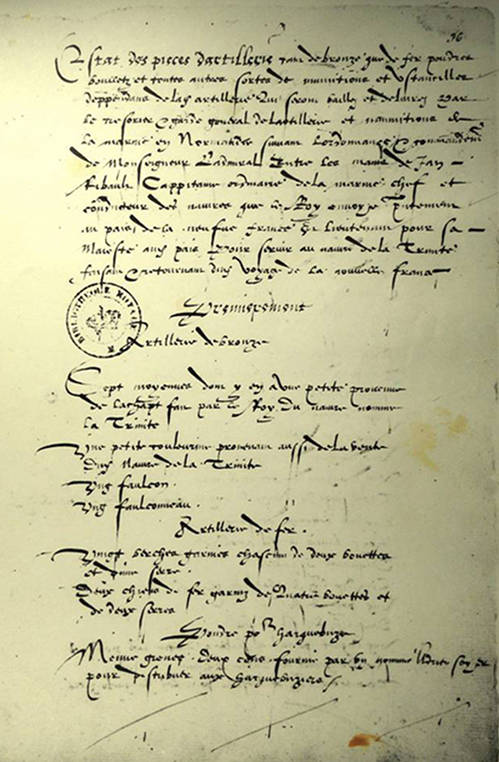 Estat des pieces dartillerie tant de bronze que de fer pouldres
boulletz et toutes autres sortes de munitions et ustancilles
deppendans de lad artillerie qui seront baillez et delivrez par
le tresorier & garde general de lartillerie et munitions de
la marine en Normandie suivant lordonnance & commandement
de Monseigneur Ladmiral Entre les mains de Jan
Ribault Cappitaine ordinaire de la marine chef et
conducteur des navires que le Roy envoye presentement
au pais de la neufve France & Lieutenant pour sa
Majeste aud pais Pour servir au navire de la Trinite
faisant & retournant dud voyage de la nouvelle France
Premierement
Artillerie de bronze
Sept moyennes dont y en a une petite provenue
de lachapt fait par le Roy du navire nomme
la Trinite
Une petite coulevrine provenant aussi de la vente
dud Navire de la Trinite
Ung faulcon
Ung faulconneau
Artillerie de fer
Vingt berches garnies chascune de deux bouettes
et dune serre
Deux chiens de fer garniz de Quatre bouettes et
de deux serres
Pouldre por Harquebuze
Menue grenee deux cens fournie par ung nomme
pour distribuer aux harquebuziers